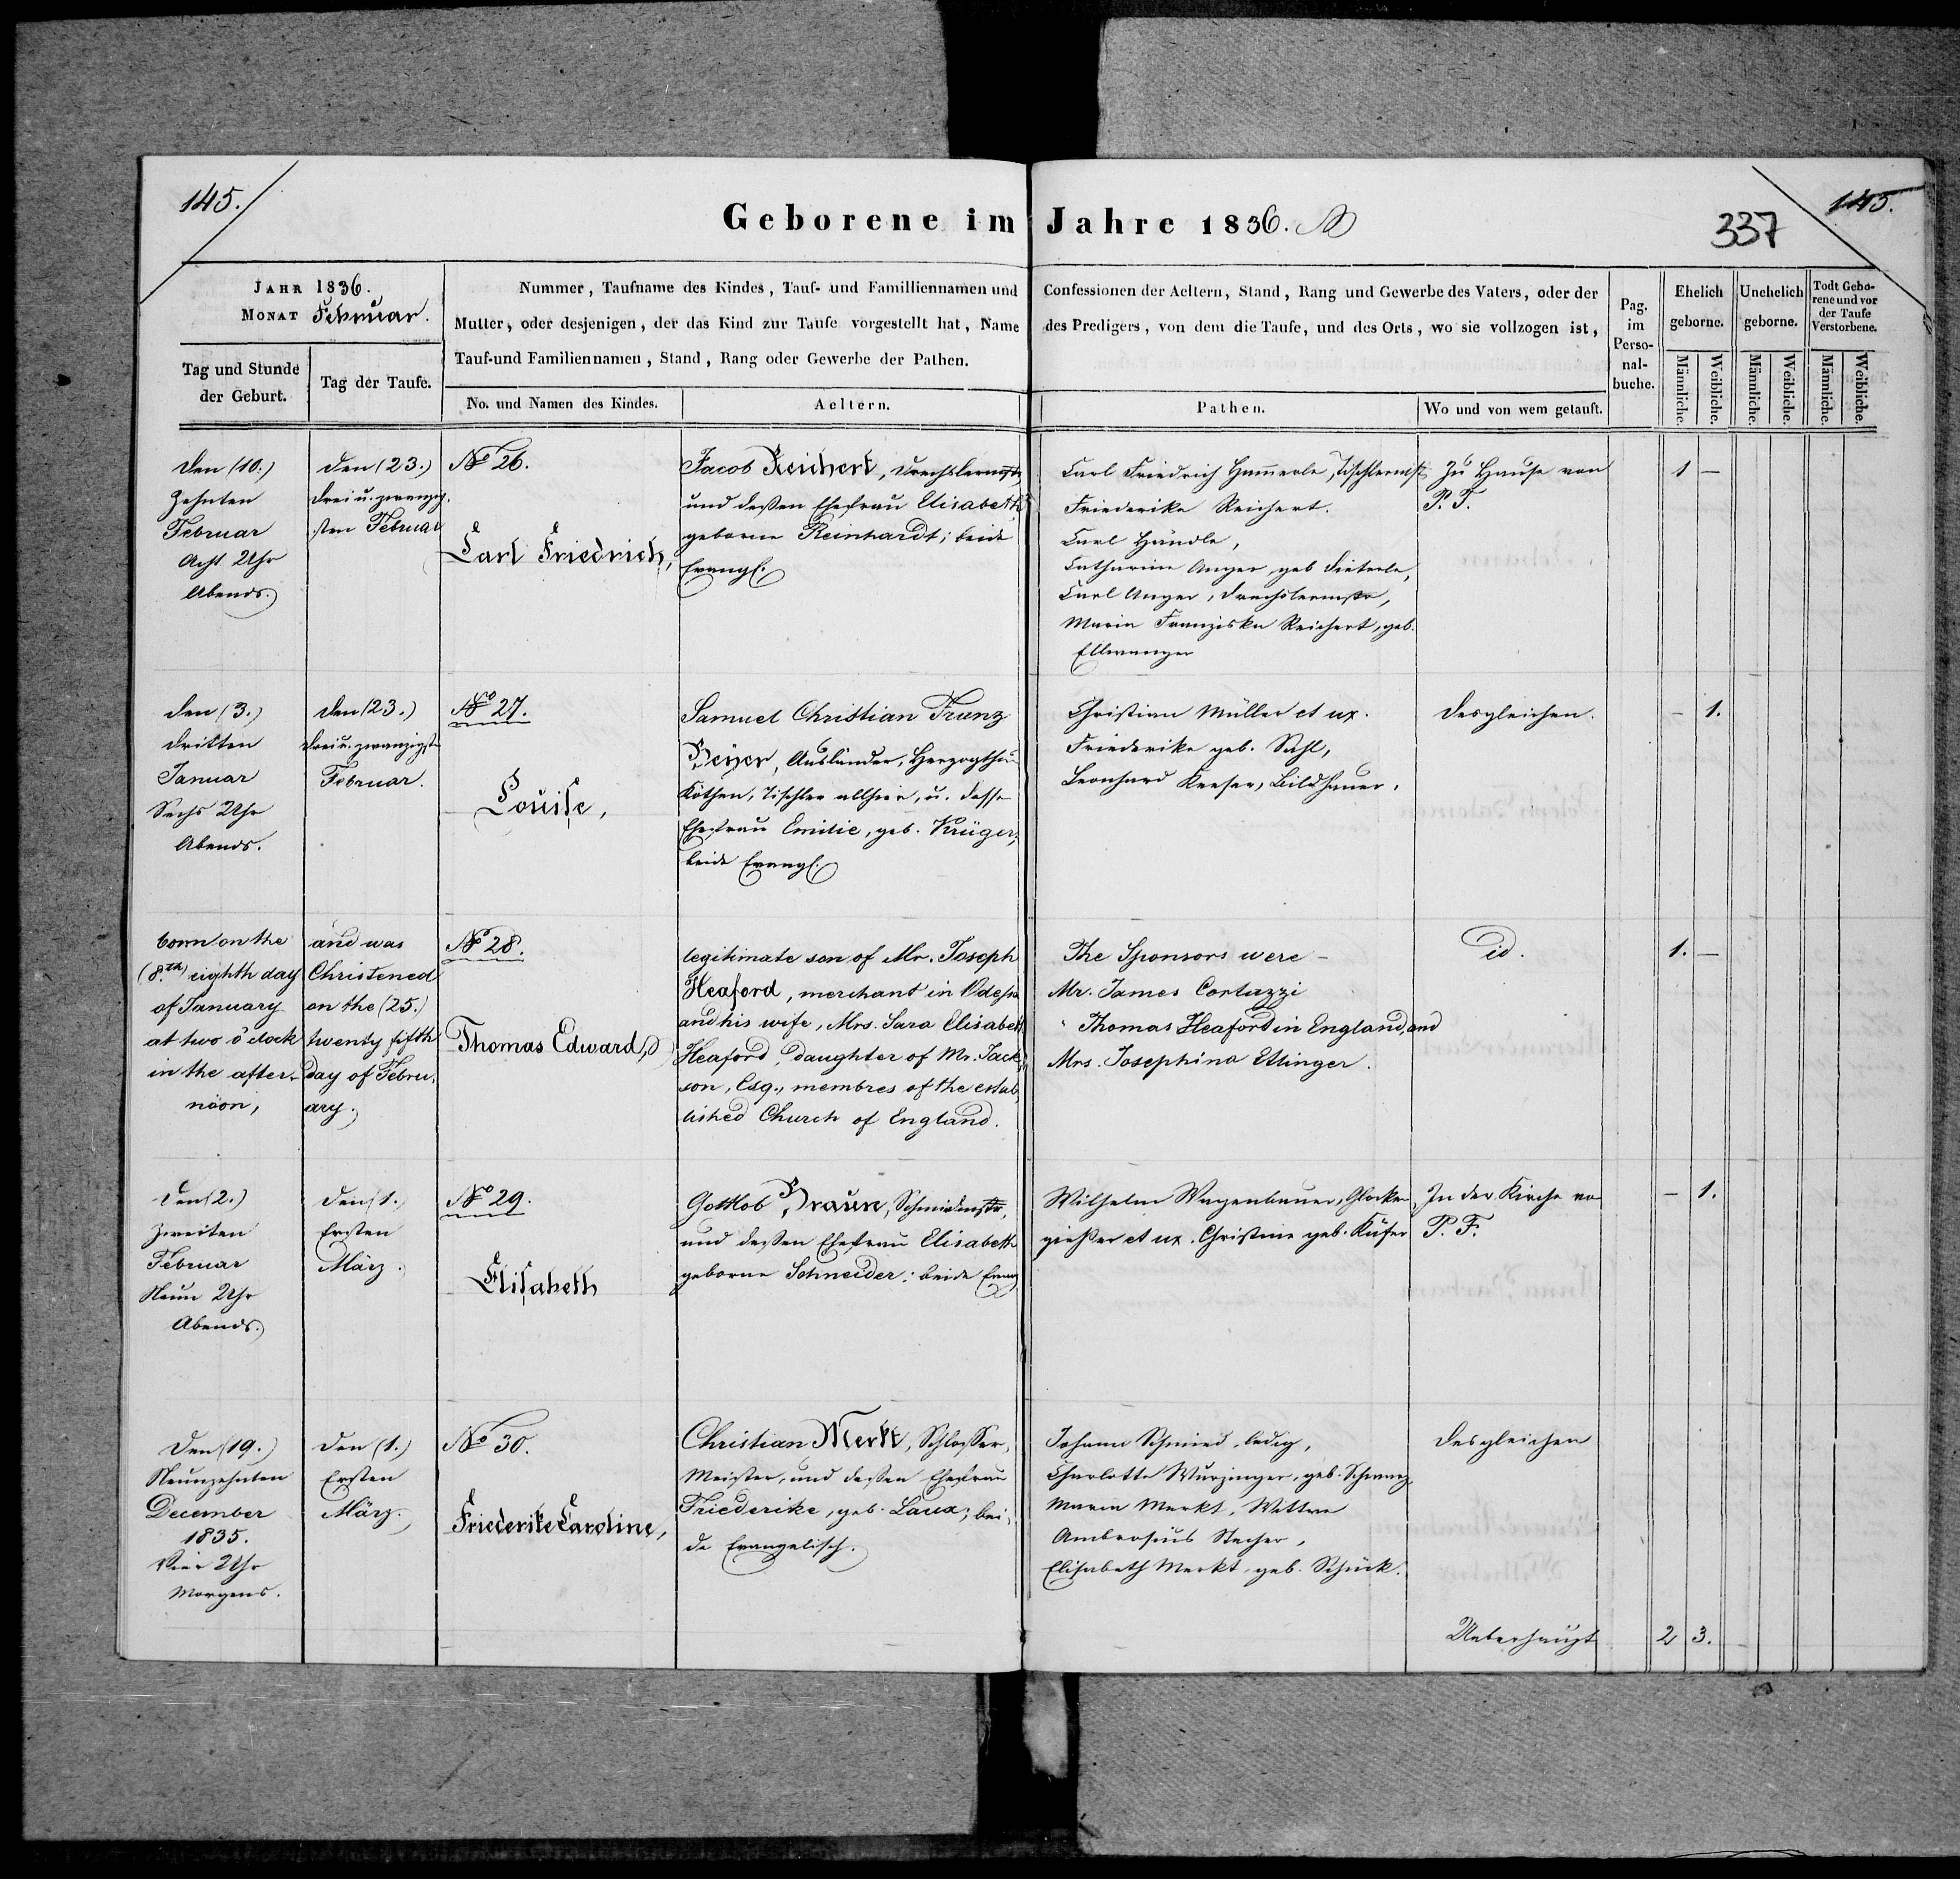 145.
Geborene im Jahre 1836.
337
145.
JAHR 1836.
MONAT Februar.
Tag und Stunde
der Geburt.
Tag der Taufe.
Nummer, Taufname des Kindes, Tauf- und Familliennamen und
Mutter, oder desjenigen, der das Kind zur Taufe vorgestellt hat, Name
Tauf-und Familiennamen, Stand, Rang oder Gewerbe der Pathen.
No. und Namen des Kindes.
Aeltern.
Confessionen der Aeltern, Stand, Rang und Gewerbe des Vaters, oder der
des Predigers, von dem die Taufe, und des Orts, wo sie vollzogen ist,
Pathen.
Wo und von wem getauft.
Pag.
im
Perso-
nal-
buche.
Ehelich
geborne.
Unehelich
geborne.
Todt Gebo-
rene und vor
der Taufe
Verstorbene.
Männliche.
Weibliche.
Männliche.
Weibliche.
Männliche.
Weibliche.
den (10.)
Zehnten
Februar
Acht Uhr
Abends.
den (23.)
drei u. zwanzig-
sten Februar
No 26.
Carl Friedrich,
Jacob Reichert, Drechslermstr
und deßen Ehefrau Elisabeth
geborne Reinhardt; beide
Evangl.
Carl Friedrich Hammerle, Tischlermst
Friederike Reichert.
Carl Händle,
Catharina Anger geb
Carl Anger, Drechslermstr,
Maria Franziska Reichert, geb.
Ellwanger
Zu Hause von
P. F.
1 —
den (3.)
dritten
Januar
Sechs Uhr
Abends.
den (23.)
drei u. zwanzigst
Februar.
No 27.
Louise,
Samuel Christian Franz
Beyer, Ausländer, Herzogthu
Köthen, Tischler allhier, u. desse
Ehefrau Emilie, geb. Krüger;
beide Evangl.
Christian Müller et ux.
Friederike geb. Sahl,
Leonhard Keeser, Bildhauer.
desgleichen.
— 1.
born on the
(8.th) eighth day
of January
at two o'clock
in the after-
noon,
and was
Christened
on the (25.)
twenty fifth
day of Febru-
ary.
No 28.
Thomas Edward,
legitimate son of Mr. Joseph
Heaford, merchant in Odessa
and his wife, Mrs. Sara Elisabeth
Heaford, daughter of Mr. Jack-
son, Esq., membres of the estab-
lished Church of England.
The Sponsors were —
Mr. James Cortazzi
" Thomas Heaford in England, and
Mrs. Josephina Ettinger.
id.
1. —
den (2.)
Zweiten
Februar
Neun Uhr
Abends.
den (1.)
Ersten
März.
No 29.
Elisabeth
Gottlob Braun, Schmidmstr,
und deßen Ehefrau Elisabeth
geborne Schneider; beide Evang
Wilhelm Wagenbauer, Glocken
gießer et ux. Christine geb. Käfer
In der Kirche vo
P. F.
— 1.
Den (19.)
Neunzehnten
December
1835.
Vier Uhr
Morgens.
Den (1.)
Ersten
März.
No 30.
Friederike Caroline,
Christian Merkt, Schlosser,
Meister, und deßen Ehefrau
Friederike, geb. Laux; bei-
de Evangelisch.
Johann Schmied, ledig,
Charlotte Wurzinger, geb. Schwarz
Maria Merkt, Wittwe
Ambrosius Stecher,
Elisabeth Merkt, geb. Schück.
desgleichen
Ueberhaupt
2 3.